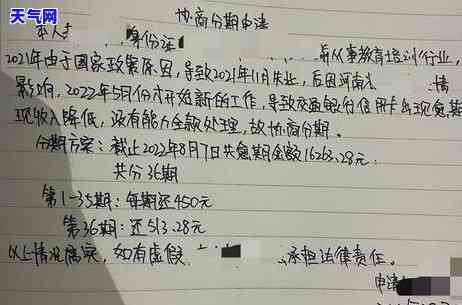 天气网
协商分期申请
本人 身份证 原从事教育培训行业,
2021年由于国家政策原因,导致2021年11月失业,后因河南 情
影响,2022年5月份才开始新的工作,导致交通银行信用卡出现逾期
现收入降低,没有能力全款处理,故协商分期。
分期方案:截止2022年8月7日共逾期金额16263.28元.
共分36期
第1-35期:每期还450元
第36期:还513.28元
以上情况属实,如有虚假 承担法律责任。
申请